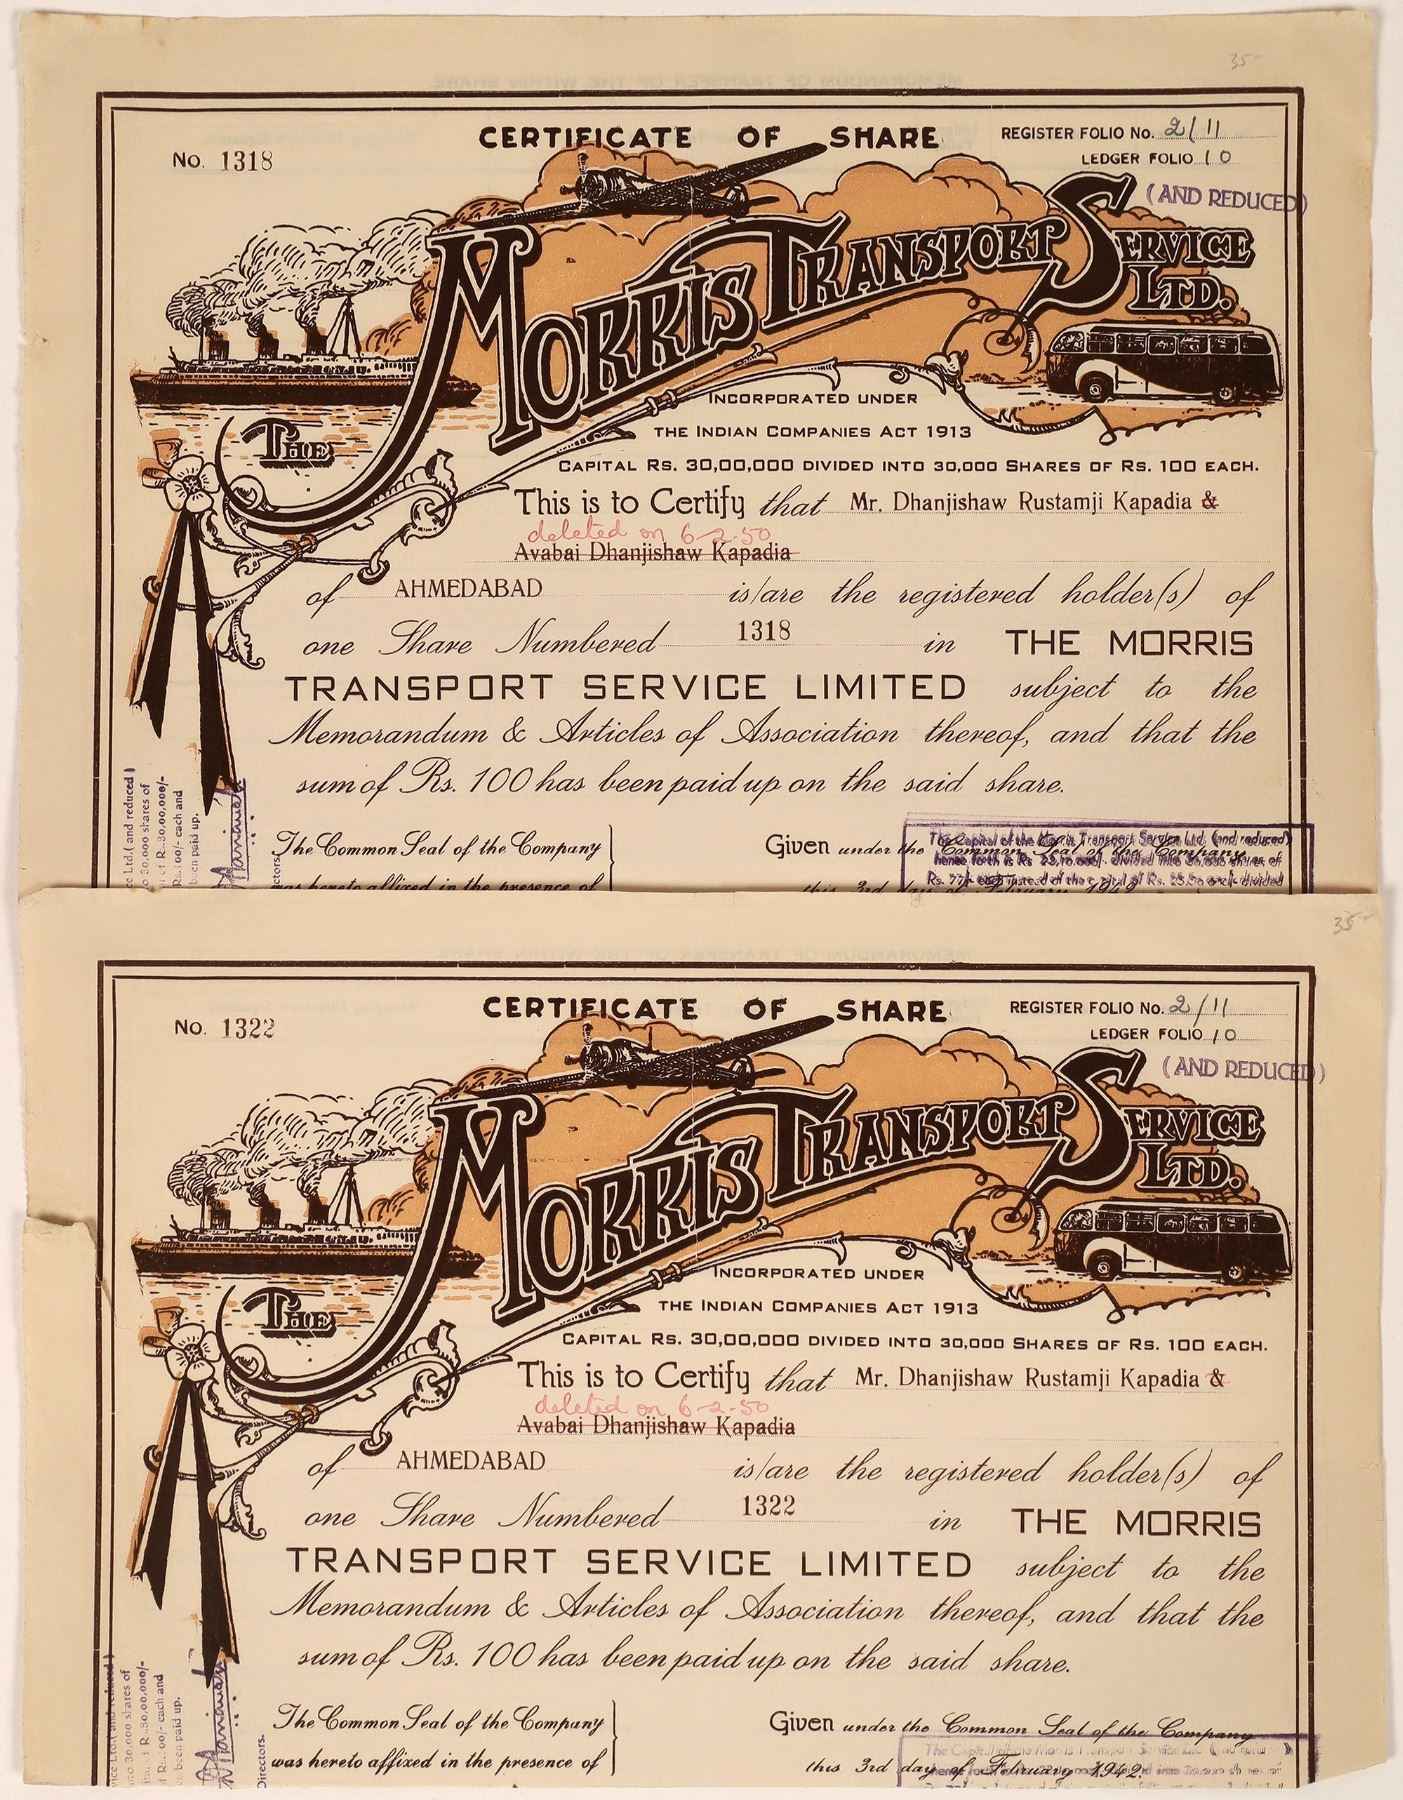 35-
CERTIFICATE OF SHARE
REGISTER FOLIO No. 2/11
No. 1318
LEDGER FOLIO 10
(AND REDUCED)
THE MORRIS TRANSPORT SERVICE LTD.
INCORPORATED UNDER
THE INDIAN COMPANIES ACT 1913
CAPITAL RS. 30,00,000 DIVIDED INTO 30,000 SHARES OF RS. 100 EACH.
This is to Certify that Mr. Dhanjishaw Rustamji Kapadia &
deleted on 6-2-50
Avabai Dhanjishaw Kapadia
of AHMEDABAD is/are the registered holder(s) of
one Share Numbered 1318 in THE MORRIS
TRANSPORT SERVICE LIMITED subject to the
Memorandum & Articles of Association thereof, and that the
sum of Rs. 100 has been paid up on the said share.
ce Ltd. (and reduced)
o 30,000 shares of
of R. 30,00,000/-
Rs. 100/- each and
been paid up.
ctors.
The Common Seal of the Company
was hereto affixed in the presence of
Given under the Common Seal of the Company
this 3rd day of February 1942
The Capital of the Morris Transport Service Ltd. (and reduced)
35-
CERTIFICATE OF SHARE
REGISTER FOLIO No. 2/11
No. 1322
LEDGER FOLIO 10
(AND REDUCED)
THE MORRIS TRANSPORT SERVICE LTD.
INCORPORATED UNDER
THE INDIAN COMPANIES ACT 1913
CAPITAL RS. 30,00,000 DIVIDED INTO 30,000 SHARES OF RS. 100 EACH.
This is to Certify that Mr. Dhanjishaw Rustamji Kapadia &
deleted on 6-2-50
Avabai Dhanjishaw Kapadia
of AHMEDABAD is/are the registered holder(s) of
one Share Numbered 1322 in THE MORRIS
TRANSPORT SERVICE LIMITED subject to the
Memorandum & Articles of Association thereof, and that the
sum of Rs. 100 has been paid up on the said share.
vice Ltd. (and reduced)
nto 30,000 shares of
R. 30,00,000/-
of Rs. 100/- each and
been paid up.
Directors.
The Common Seal of the Company
was hereto affixed in the presence of
Given under the Common Seal of the Company
this 3rd day of February 1942.